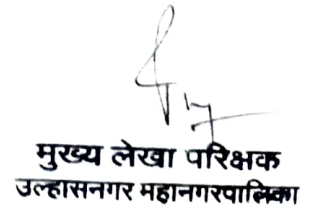 मुख्य लेखा परिक्षक
उल्हासनगर महानगरपालिका